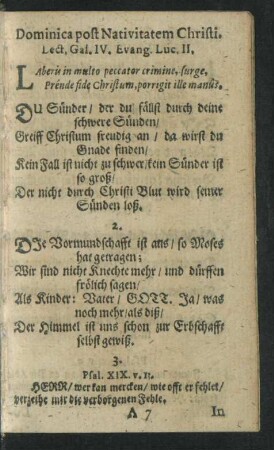 Dominica post Nativitatem Christi.
Lect. Gal. IV. Evang. Luc. II.
LAberis in multo peccator crimine, surge,
Prēnde fide Christum, porrigit ille manū.
DU Sünder / der du fällst durch deine
schwere Sünden /
Greiff Christum freudig an / da wirst du
Gnade finden /
Kein Fall ist nicht zu schwer / kein Sünder ist
so groß /
Der nicht durch Christi Blut wird seiner
Sünden loß.
2.
DIe Vormundschafft ist aus / so Moses
hat getragen;
Wir sind nicht Knechte mehr / und dürffen
frölich sagen /
Als Kinder: Vater / GOTT. Ja / was
noch mehr / als diß /
Der Himmel ist uns schon zur Erbschafft
selbst gewiß.
3.
Psal. XIX. v. 11.
HERR / wer kan mercken / wie offt er fehlet /
verzeihe mir die verborgenen Fehle.
A 7
In